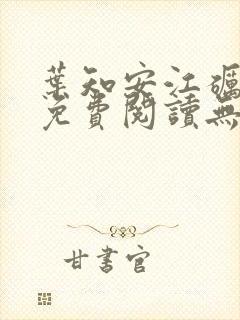 葉知安江礪
免費閱讀無
甘書官